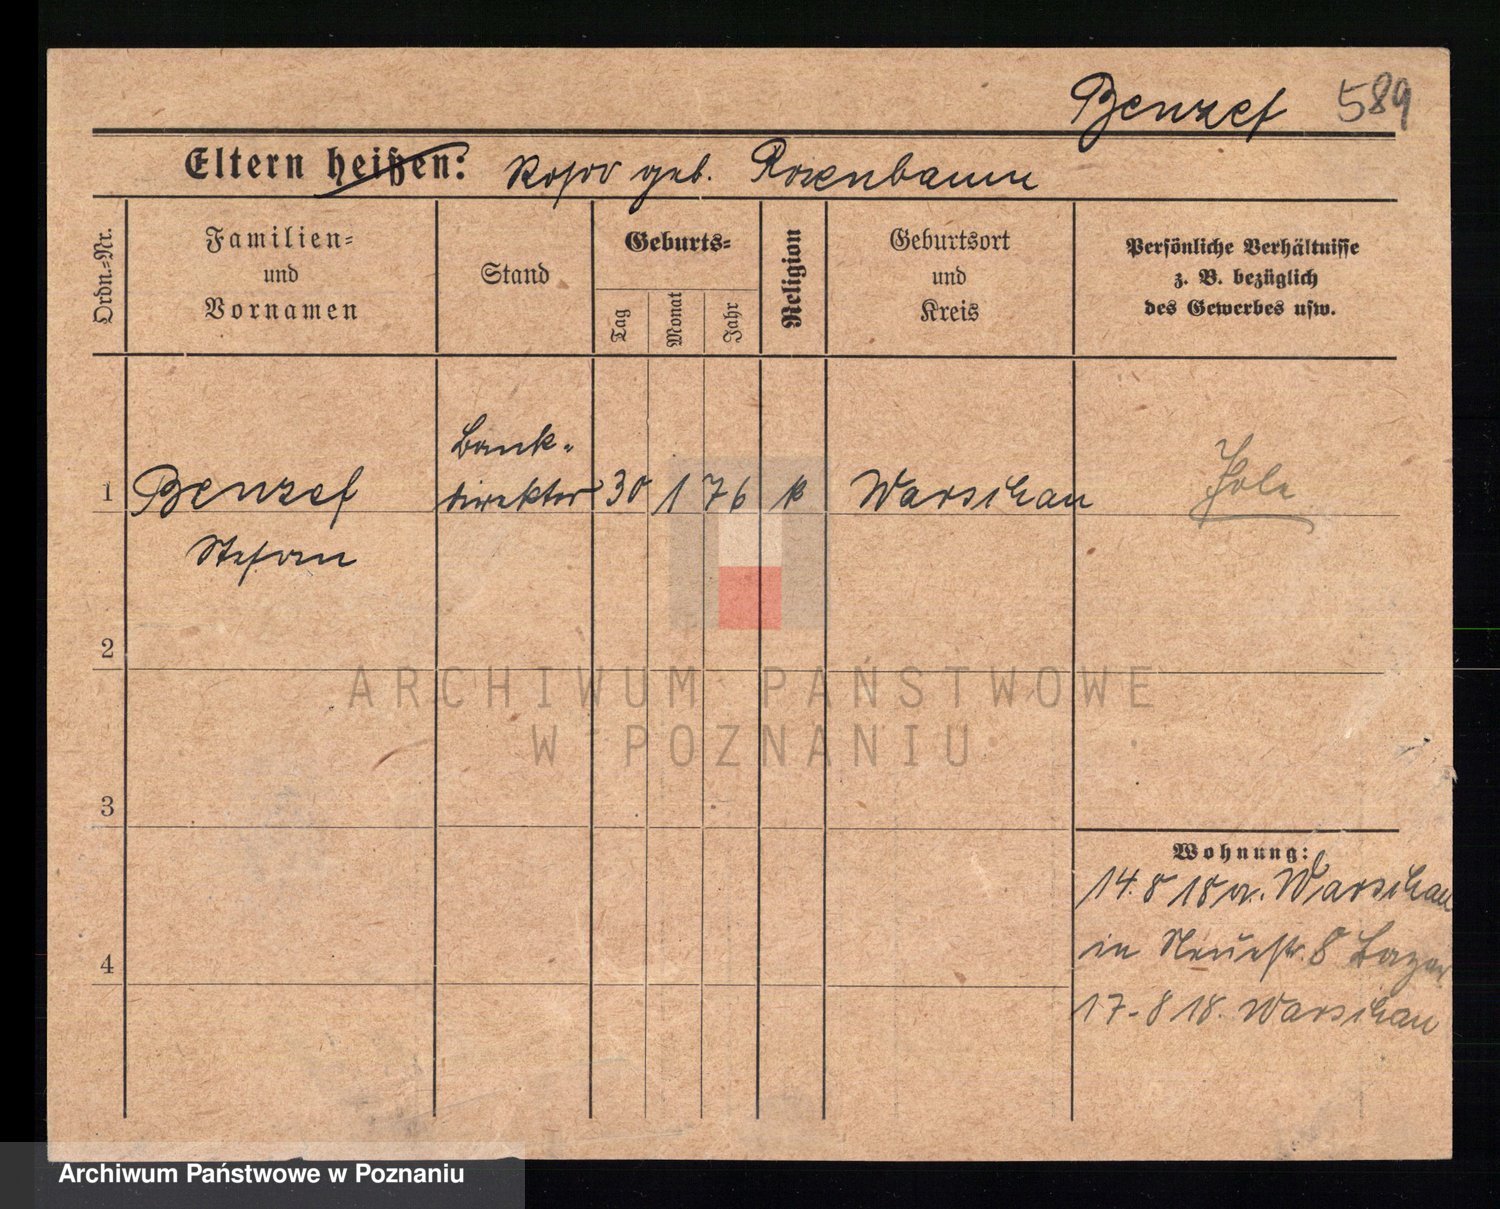 Benzef 589
Eltern heißen: geb. Rosenbaum
Ordn.-Nr.
Familien-
und
Vornamen
Stand
Geburts-
Tag
Monat
Jahr
Religion
Geburtsort
und
Kreis
Persönliche Verhältnisse
z. B. bezüglich
des Gewerbes usw.
Bank-
1 Benzef direktor 30 1 76 k Warschau Pole
Stefan
2
ARCHIWUM PAŃSTWOWE
W POZNANIU
3
Wohnung:
14. 8 18 a. Warschau
in Neuestr. 8
4
17. 8 18. Warschau
Archiwum Państwowe w Poznaniu